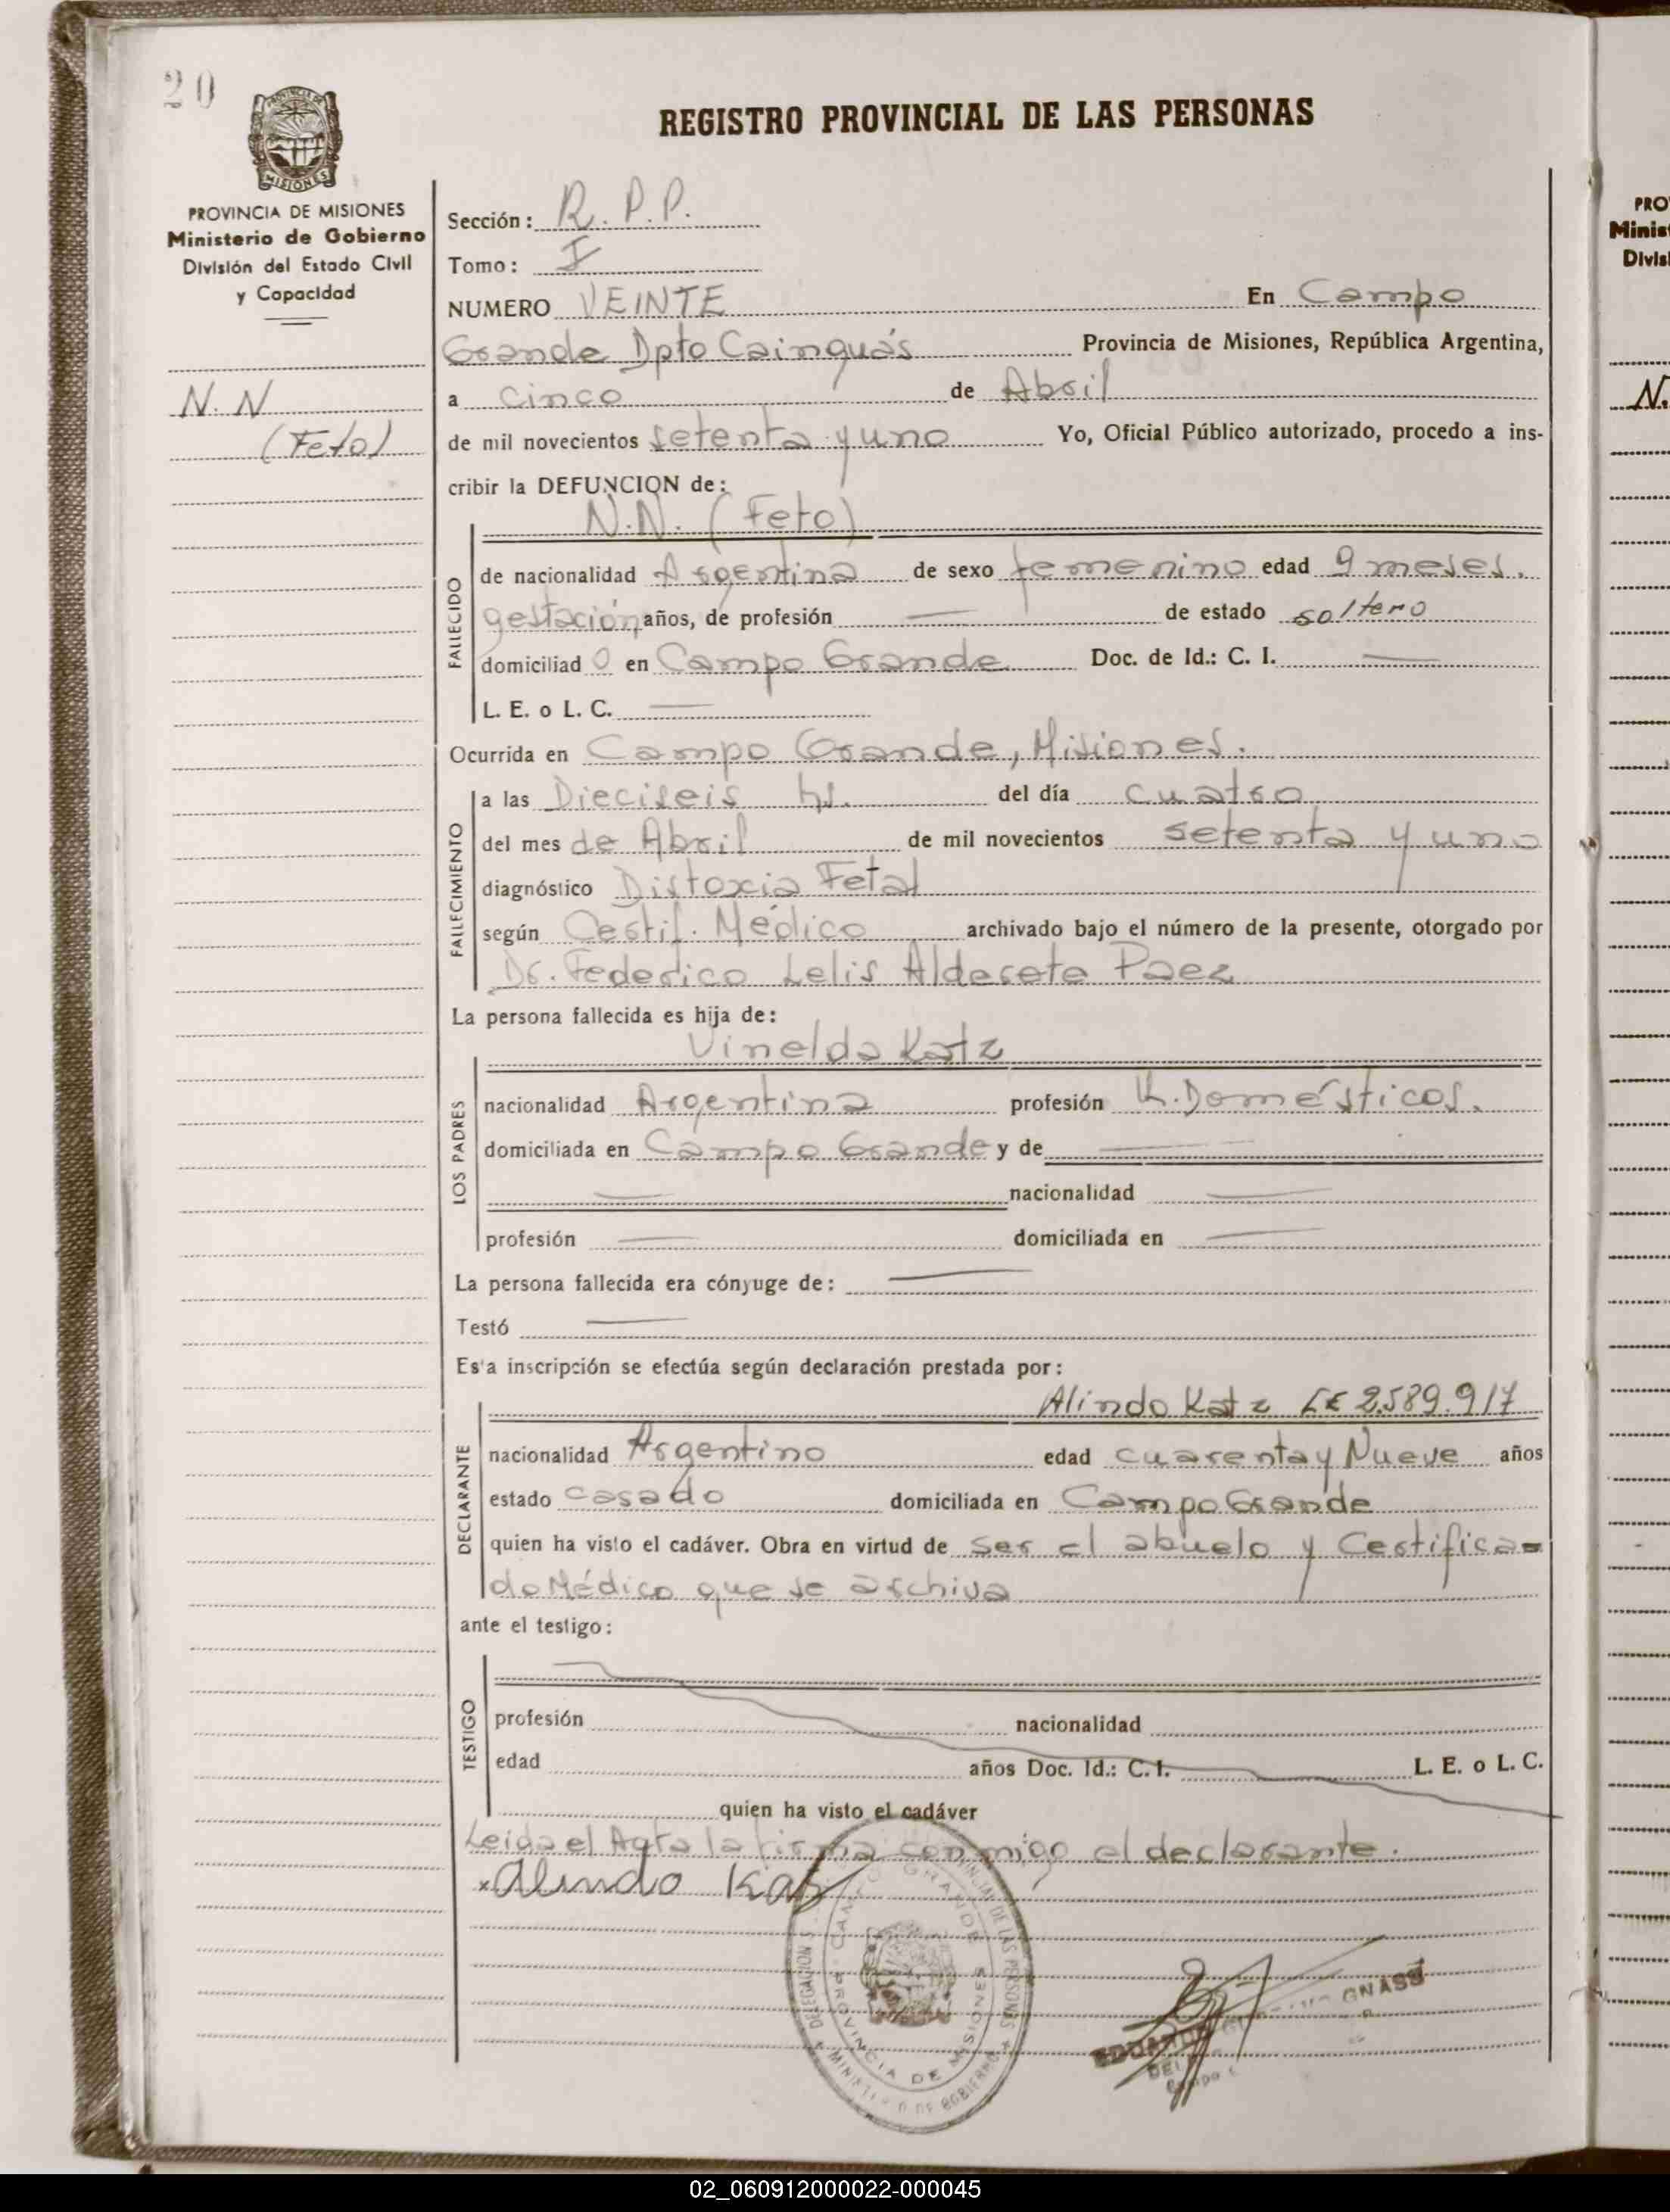 20
REGISTRO PROVINCIAL DE LAS PERSONAS
PROVINCIA DE MISIONES
Ministerio de Gobierno
División del Estado Civil
y Capacidad
N. N
(Feto)
Sección: R. P. P.
Tomo: I
NUMERO VEINTE En Campo
Grande Dpto Cainguás Provincia de Misiones, República Argentina,
a cinco de Abril
de mil novecientos setenta y uno Yo, Oficial Público autorizado, procedo a ins-
cribir la DEFUNCION de:
N.N. (Feto)
FALLECIDO
de nacionalidad Argentina de sexo femenino edad 9 meses.
gestación años, de profesión — de estado soltero
domiciliad o en Campo Grande Doc. de Id.: C. I. —
L. E. o L. C. —
Ocurrida en Campo Grande, Misiones.
FALLECIMIENTO
a las Dieciseis hs. del día cuatro
del mes de Abril de mil novecientos setenta y uno
diagnóstico Distoxia Fetal
según Certif. Médico archivado bajo el número de la presente, otorgado por
Dr. Federico Lelis Alderete Paez
La persona fallecida es hija de:
Vinelda Katz
LOS PADRES
nacionalidad Argentina profesión Q. Domésticos.
domiciliada en Campo Grande y de —
— nacionalidad —
profesión — domiciliada en —
La persona fallecida era cónyuge de: —
Testó —
Esta inscripción se efectúa según declaración prestada por:
Alindo Katz LE 2.589.917
DECLARANTE
nacionalidad Argentino edad cuarenta y Nueve años
estado casado domiciliada en Campo Grande
quien ha visto el cadáver. Obra en virtud de ser el abuelo y Certifica=
do Médico que se archiva
ante el testigo:
TESTIGO
profesión nacionalidad
edad años Doc. Id.: C. I. L. E. o L. C.
quien ha visto el cadáver
Leida el Acta la firma conmigo el declarante.
x Alindo Katz
DELEGACION CAMPO GRANDE PROVINCIAL DE LAS PERSONAS
PROVINCIA DE MISIONES
MINISTERIO DE GOBIERNO
GNASS
PRO
Minis
Divis
N.
02_060912000022-000045